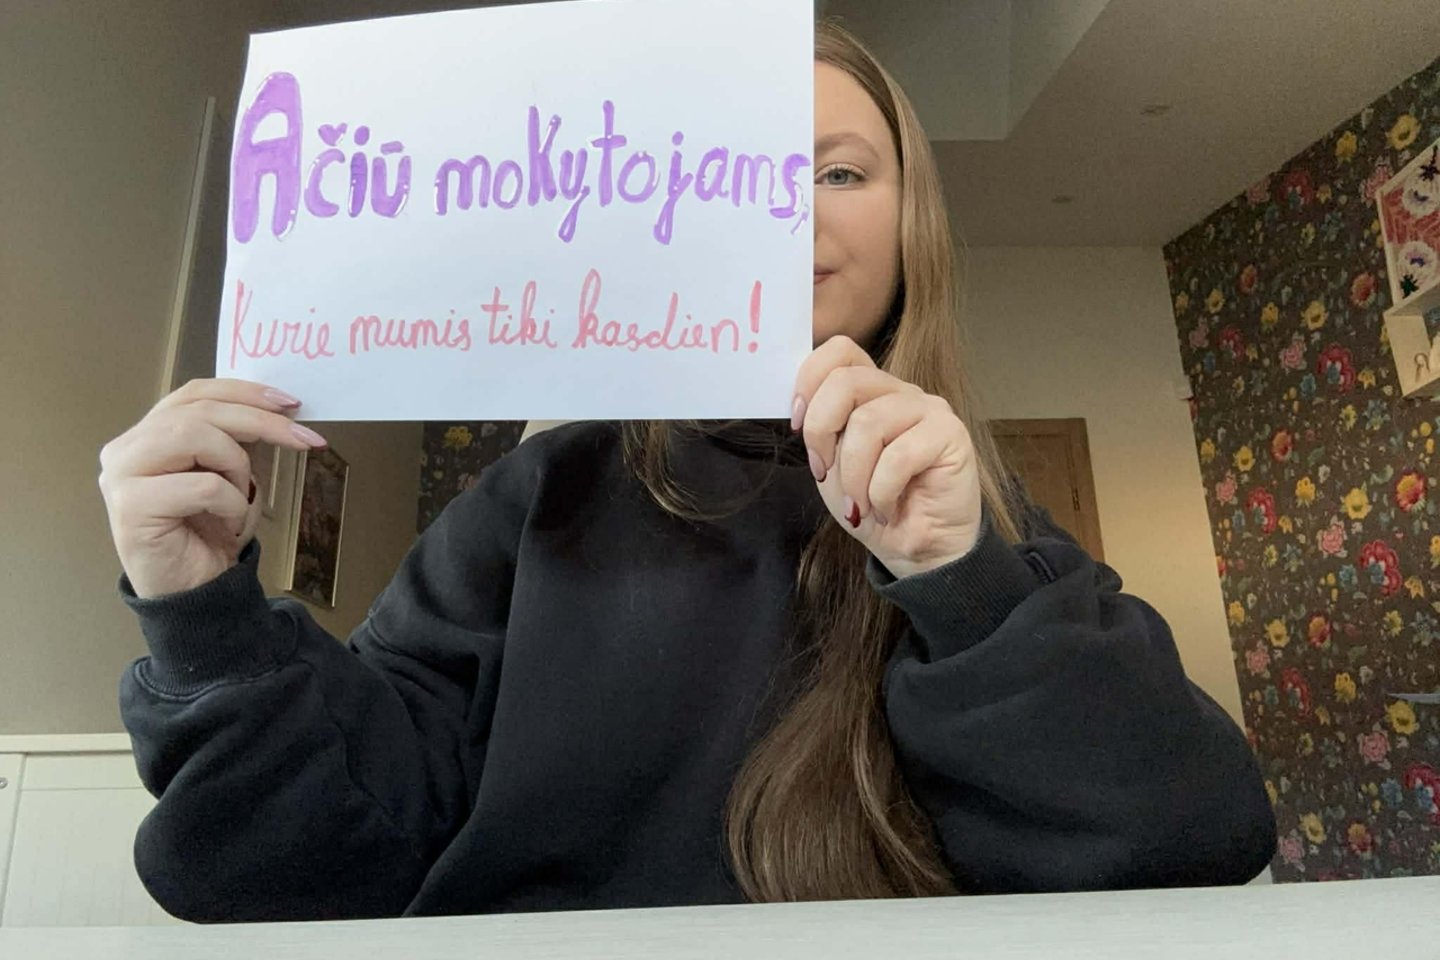 Ačiū mokytojams,
Kurie mumis tiki kasdien!